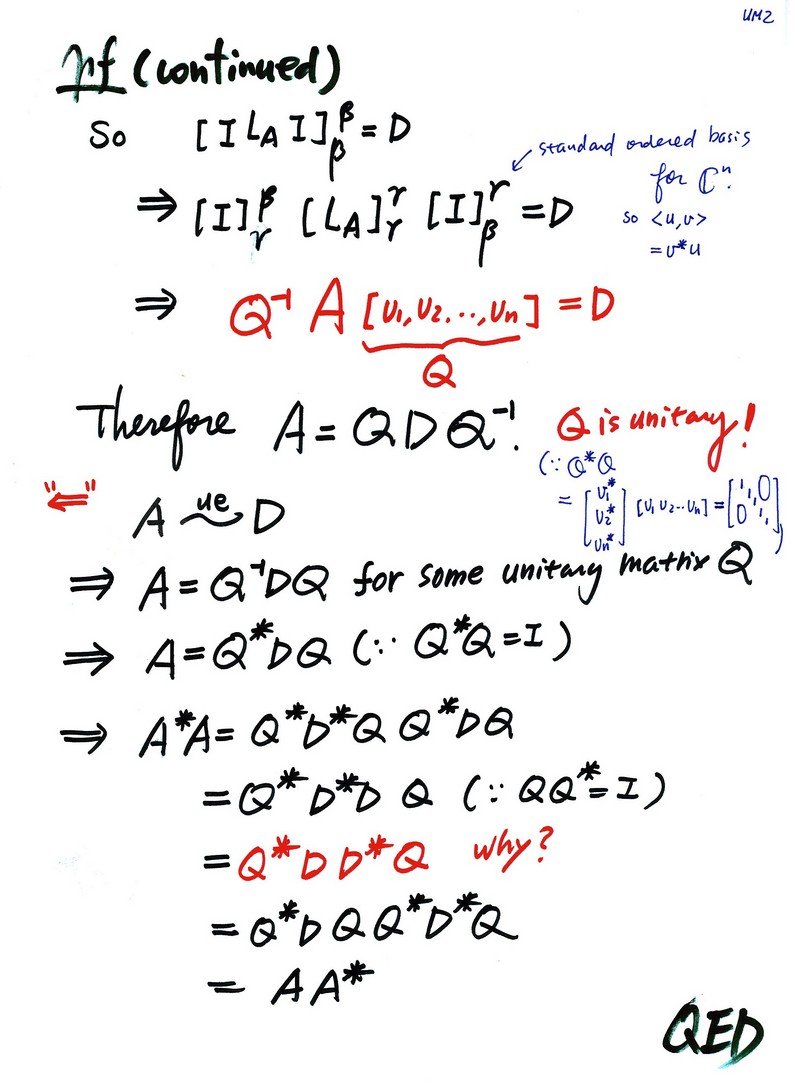 UM2
pf (continued)
So [I L_A I]_β^β = D
⇒ [I]_γ^β [L_A]_γ^γ [I]_β^γ = D
standard ordered basis
for ℂⁿ.
so <u,v>
= v*u
⇒ Q⁻¹ A [v₁, v₂..., vn] = D
Q
Therefore A = Q D Q⁻¹.
Q is unitary!
(∵ Q*Q
= [v₁* v₂* vn*] [v₁ v₂ ... vn] = [1 1 0 0 1 1]
)
"⇐"
A ~ue D
⇒ A = Q⁻¹DQ for some unitary matrix Q
⇒ A = Q*DQ (∵ Q*Q = I)
⇒ A*A = Q*D*Q Q*DQ
= Q* D*D Q (∵ QQ* = I)
= Q*D D*Q why?
= Q*D Q Q*D*Q
= A A*
QED